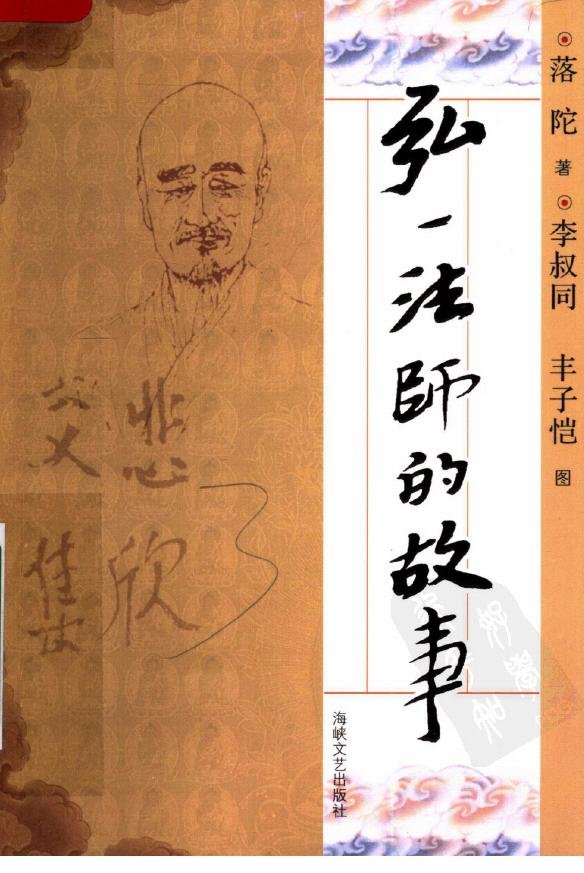 弘一法師的故事
落陀 著
李叔同 丰子恺 图
悲欣
交集
海峡文艺出版社